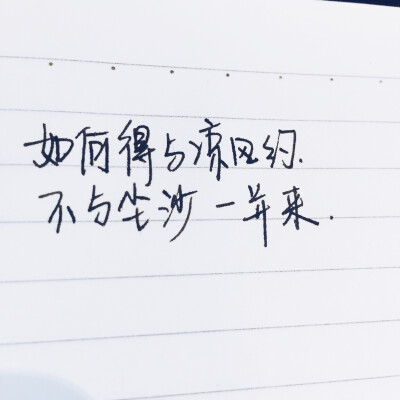 如何得与凉风约.
不与尘沙一并来.